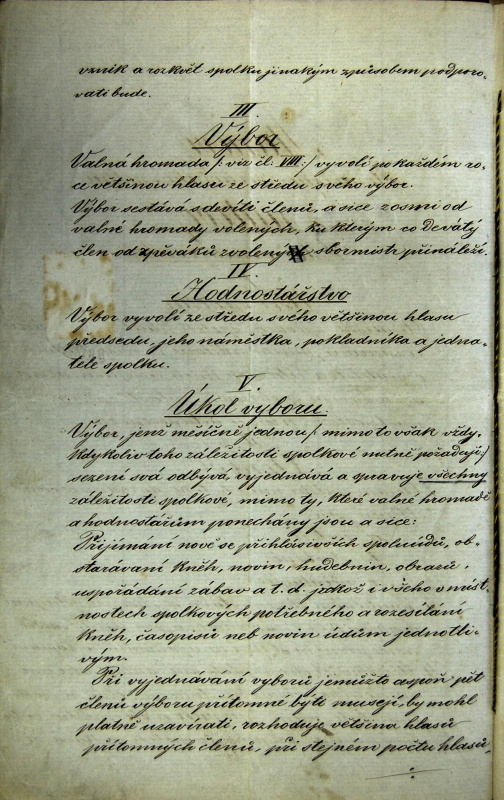 vznik a rozkvět spolku jinakým způsobem podporo-
vati bude.
III.
Výbor
Valná hromada /: viz čl: VIII :/ vyvolí po každém ro-
ce většinou hlasu ze středu svého výbor.
Výbor sestává s devíti členů, a sice z osmi od
valné hromady volených, ku kterým co devátý
člen od zpěváků zvolený sbormistr přináleží.
IV.
Hodnostářstvo
Výbor vyvolí ze středu svého většinou hlasu
předsedu, jeho náměstka, pokladníka a jedna-
tele spolku.
V.
Úkol výboru.
Výbor, jenž měsíčně jednou /: mimo to však vždy,
kdykoliv toho záležitosti spolkové nutně požadují :/
sezení svá odbývá vyjednává a spravuje všechny
záležitosti spolkové, mimo ty, které valné hromadě
a hodnostářům ponechány jsou a sice:
Přijímání nově se přihlásivších spoluúdů, ob-
starávaní kněh, novin, hudebnin, obrazů,
uspořádání zábav a t. d. jakož i všeho v míst-
nostech spolkových potřebného a rozesílání
kněh, časopisů neb novin údům jednotli-
vým.
Při vyjednávání výborů jemužto aspoň pět
členů výboru přítomné býti musejí, by mohl
platně uzavírati, rozhoduje většina hlasů
přítomných členů, při stejném počtu hlasů,